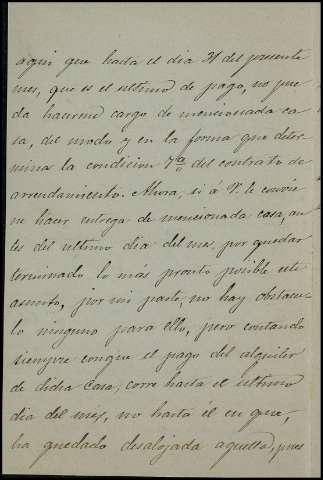 aqui que hasta el dia 31 del presente
mes, que es el ultimo de pago, no pue-
da hacerme cargo de mencionada ca-
sa, del modo y en la forma que deter-
mina la condicion 7ª del contrato de
arrendamiento. Ahora, si á V. le convie-
ne hacer entrega de mencionada casa, an-
tes del ultimo dia del mes, por quedar
terminado lo más pronto posible este
asunto, por mi parte, no hay obstacu-
lo ninguno para ello, pero contando
siempre conque el pago del alquiler
de dicha casa, corre hasta el ultimo
dia del mes, no hasta él en que,
ha quedado desalojada aquella, pues